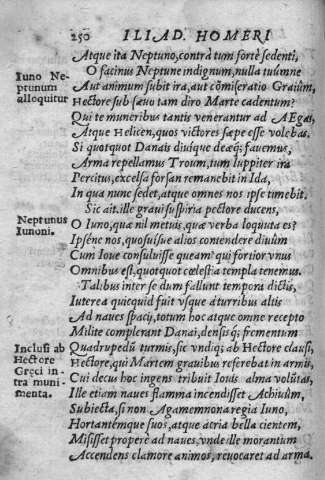 250 ILIAD. HOMERI
Atque ita Neptuno, contrà tum fortè sedenti,
Iuno Ne-
ptunum
alloquitur
O facinus Neptune indignum, nulla tuúmne
Aut animum subit ira, aut cõmiseratio Graiûm,
Hectore sub sæuo tam diro Marte cadentum?
Qui te muneribus tantis venerantur ad AEgas,
Atque Helicen, quos victores sæpe esse volebas.
Si quotquot Danais diuique deæq; fauemus,
Arma repellamus Troum, tum Iuppiter ira
Percitus, excelsa forsan remanebit in Ida,
In qua nunc sedet, atque omnes nos ipse timebit.
Sic ait. ille graui suspiria pectore ducens,
Neptunus
Iunoni.
O Iuno, quæ nil metuis, quæ verba loquuta es?
Ipséne nos, quosuisue alios contendere diuûm
Cum Ioue consuluisse queam? qui fortior vnus
Omnibus est, quotquot cœlestia templa tenemus.
Talibus inter se dum fallunt tempora dictis,
Interea quicquid fuit vsque à turribus altis
Ad naues spacij, totum hoc atque omne recepto
Milite complerant Danai, densisq; frementum
Inclusi ab
Hectore
Gręci in-
tra muni-
menta.
Quadrupedũ turmis, sic vndiq; ab Hectore clausi,
Hectore, qui Martem grauibus referebat in armis,
Cui decus hoc ingens tribuit Iouis alma volũtas,
Ille etiam naues flamma incendisset Achiuûm,
Subiecta, si non Agamemnona regia Iuno,
Hortantémque suos, atque acria bella cientem,
Misisset properè ad naues, vnde ille morantum
Accendens clamore animos, reuocaret ad arma.